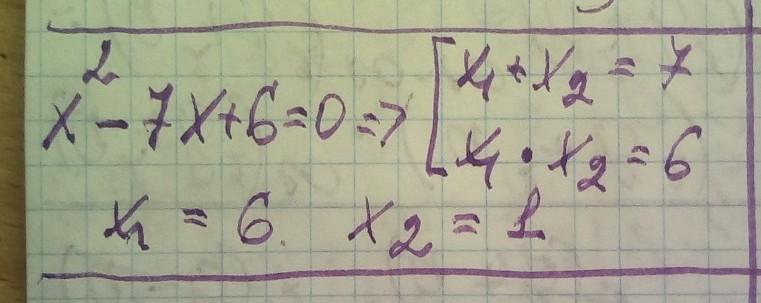 x² - 7x + 6 = 0 => [ x₁ + x₂ = 7
x₁ · x₂ = 6
x₁ = 6 x₂ = 1